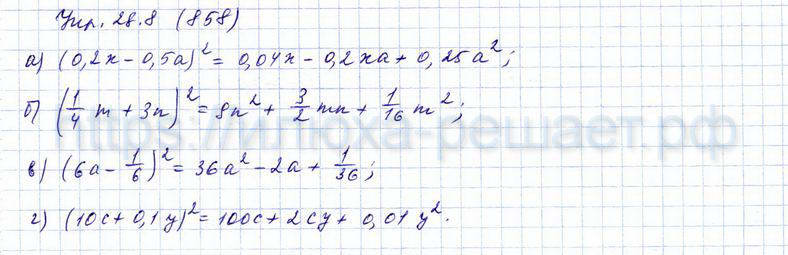 Упр. 28.8 (858)
а) (0,2x - 0,5a)² = 0,04x - 0,2xa + 0,25a²;
б) (1/4 m + 3n)² = 9n² + 3/2 mn + 1/16 m²;
в) (6a - 1/6)² = 36a² - 2a + 1/36;
г) (10c + 0,1y)² = 100c + 2cy + 0,01y².
https://илюха-решает.рф